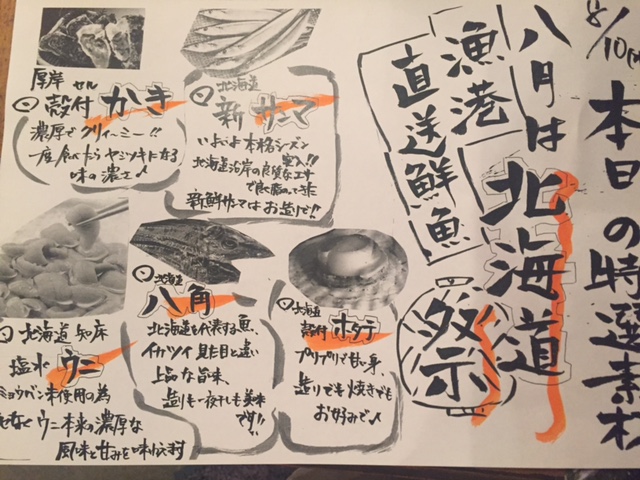 8/10(月)
本日の特選素材
八月は北海道
漁港
直送鮮魚
祭
北海道
新サンマ
いよいよ本格シーズン
突入!!
北海道沿岸の良質なエサ
で良く脂のってきた
新鮮サンマはお造りで!!
厚岸 セル
殻付かき
濃厚でクリーミー!!
一度食べたらヤミツキになる
味の濃さ♪
北海道
殻付ホタテ
プリプリで甘い身、
造りでも焼きでも
お好みで♪
北海道
八角
北海道を代表する魚、
イカツイ見た目と違い
上品な旨味、
造りも一夜干しも美味
です!!
北海道 知床
塩水ウニ
ミョウバン未使用の為
なくウニ本来の濃厚な
風味と甘みを味わえます